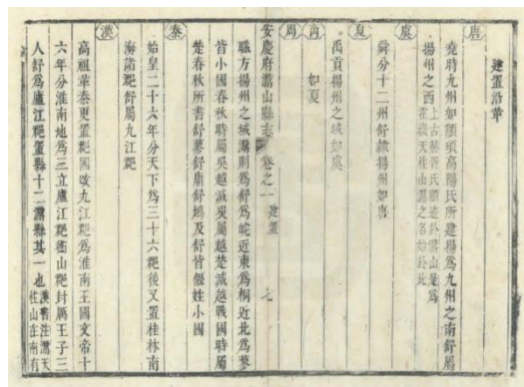 建置沿革
唐
堯時九州如顓頊高陽氏所建揚爲九州之南舒屬
揚州之西
虞
舜分十二州舒隸揚州如唐
夏
禹貢揚州之域如虞
商
如夏
周
安慶府潛山縣志 卷之一 建置 七
職方揚州之域潛則爲舒爲皖近東爲桐近北爲蓼
皆小國春秋時屬吳越滅吳屬越楚滅越戰國時屬
楚春秋所書舒蓼舒庸舒鳩及舒皆偃姓小國
秦
始皇二十六年分天下爲三十六郡後又置桂林南
海諸郡舒屬九江郡
漢
高祖革秦更置郡國改九江郡爲淮南王國文帝十
六年分淮南地爲三立廬江郡衡山郡封厲王子三
人舒爲廬江郡置縣十二潛縣其一也漢書注潛天
柱山在南有